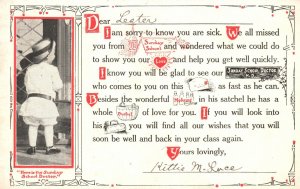 Dear Lester
I am sorry to know you are sick. We all missed
you from Sunday School and wondered what we could do
to show you our Love and help you get well quickly.
I know you will be glad to see our SUNDAY SCHOOL DOCTOR
who comes to you on this as fast as he can.
Besides the wonderful Medicine in his satchel he has a
whole Packet of love for you. If you will look into
his you will find all our wishes that you will
soon be well and back in your class again.
Yours lovingly,
Kittie M.
"Here is the Sunday
School Doctor."